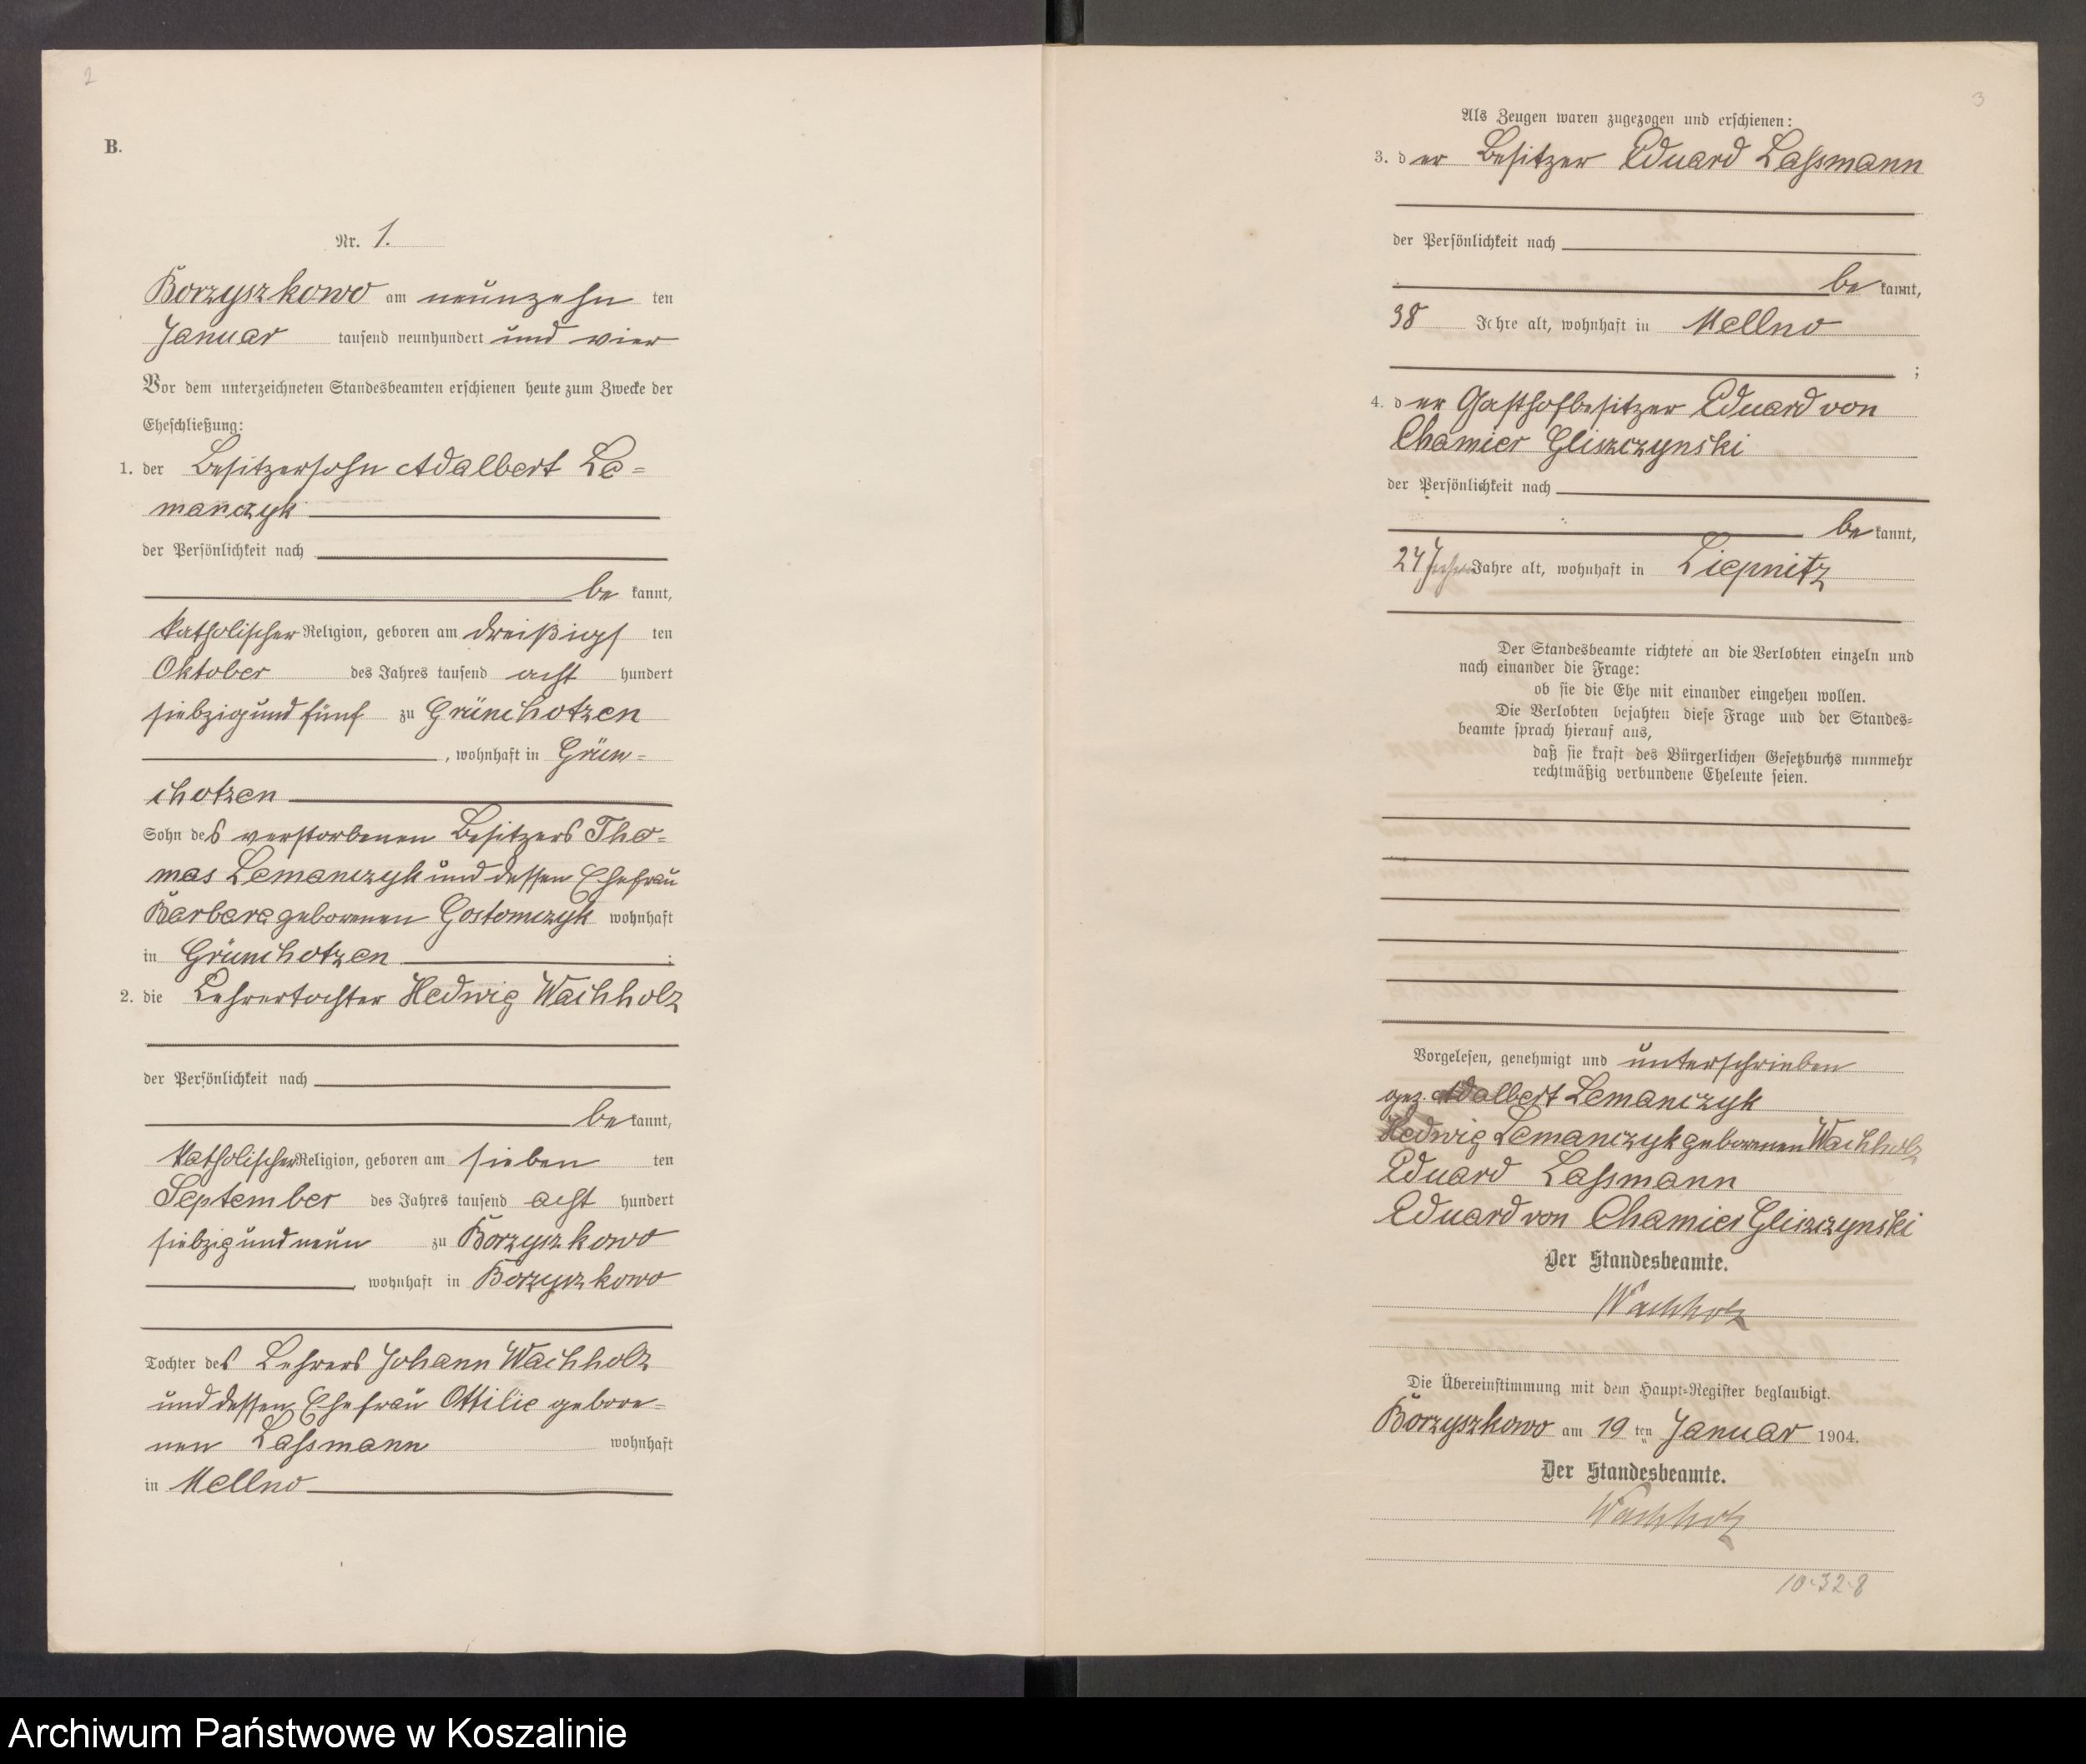 2
B.
Nr. 1.
Borzyszkowo am neunzehn ten
Januar tausend neunhundert und vier
Vor dem unterzeichneten Standesbeamten erschienen heute zum Zwecke der
Eheschließung:
1. der Besitzersohn Adalbert Le=
manczyk
der Persönlichkeit nach
be kannt,
katholischer Religion, geboren am dreißigst ten
Oktober des Jahres tausend acht hundert
siebzigundfünf zu Grünchotzen
, wohnhaft in Grün=
chotzen
Sohn des verstorbenen Besitzers Tho=
mas Lemanczyk und dessen Ehefrau
Barbara geborenen Gostomczyk wohnhaft
in Grünchotzen ;
2. die Lehrertochter Hedwig Wachholz
der Persönlichkeit nach
be kannt,
katholischer Religion, geboren am sieben ten
September des Jahres tausend acht hundert
siebzigundneun zu Borzyszkowo
, wohnhaft in Borzyszkowo
Tochter des Lehrers Johann Wachholz
und dessen Ehefrau Ottilie gebore=
nen Lassmann wohnhaft
in Mellno
3
Als Zeugen waren zugezogen und erschienen:
3. der Besitzer Eduard Lassmann
der Persönlichkeit nach
be kannt,
38 Jahre alt, wohnhaft in Mellno
;
4. der Gasthofbesitzer Eduard von
Chamier Gliszczynski
der Persönlichkeit nach
be kannt,
24 Jahre alt, wohnhaft in Liepnitz
Der Standesbeamte richtete an die Verlobten einzeln und
nach einander die Frage:
ob sie die Ehe mit einander eingehen wollen.
Die Verlobten bejahten diese Frage und der Standes=
beamte sprach hierauf aus,
daß sie kraft des Bürgerlichen Gesetzbuchs nunmehr
rechtmäßig verbundene Eheleute seien.
Vorgelesen, genehmigt und unterschrieben
gez. Adalbert Lemanczyk
Hedwig Lemanczyk geborenen Wachholz
Eduard Lassmann
Eduard von Chamier Gliszczynski
Der Standesbeamte.
Wachholz
Die Übereinstimmung mit dem Haupt=Register beglaubigt.
Borzyszkowo am 19 ten Januar 1904.
Der Standesbeamte.
Wachholz
10.32.8
Archiwum Państwowe w Koszalinie